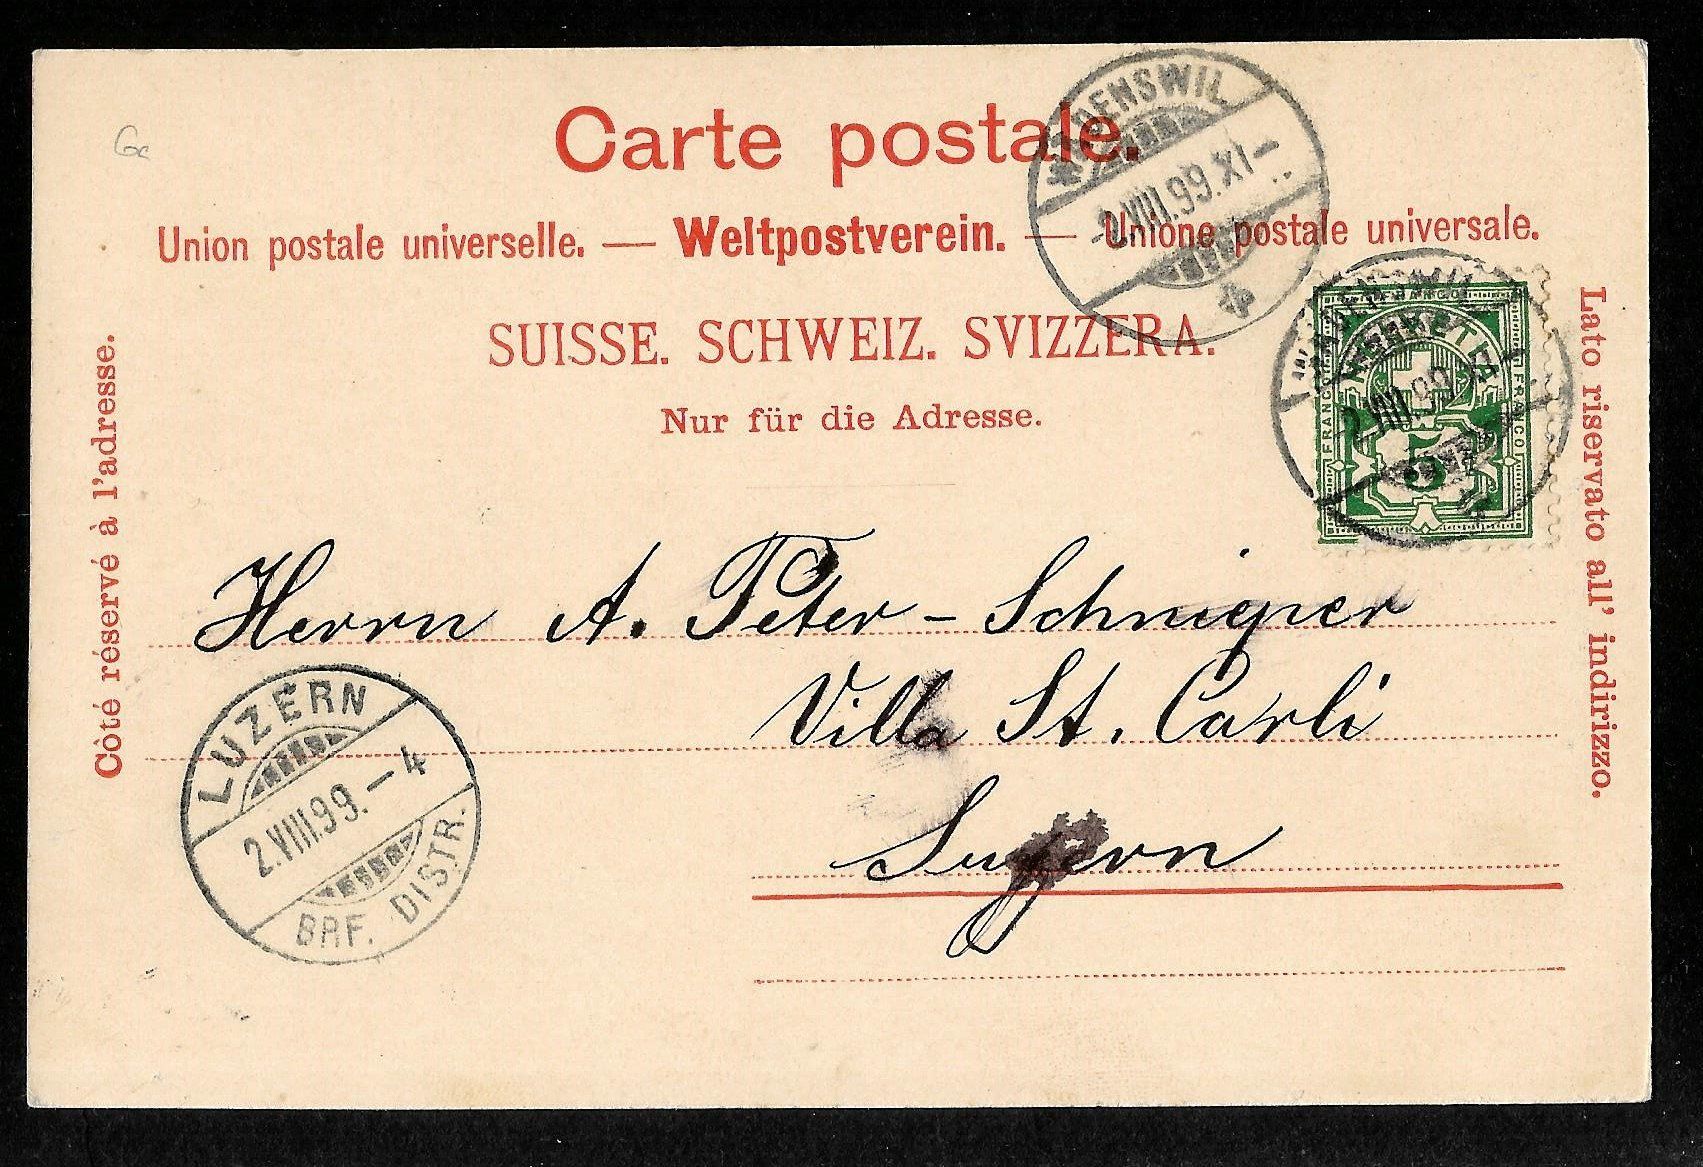 Carte postale.
Union postale universelle. — Weltpostverein. — Unione postale universale.
SUISSE. SCHWEIZ. SVIZZERA.
Nur für die Adresse.
Côté réservé à l'adresse.
Lato riservato all' indirizzo.
WÄDENSWIL
2.VIII.99.XI–
FRANCO
FRANCO
FRANCO
5
2.VIII.99.XI–
Herrn A. Peter-Schnieper
Villa St. Carli
Luzern
LUZERN
2.VIII.99.–4
BRF. DISTR.